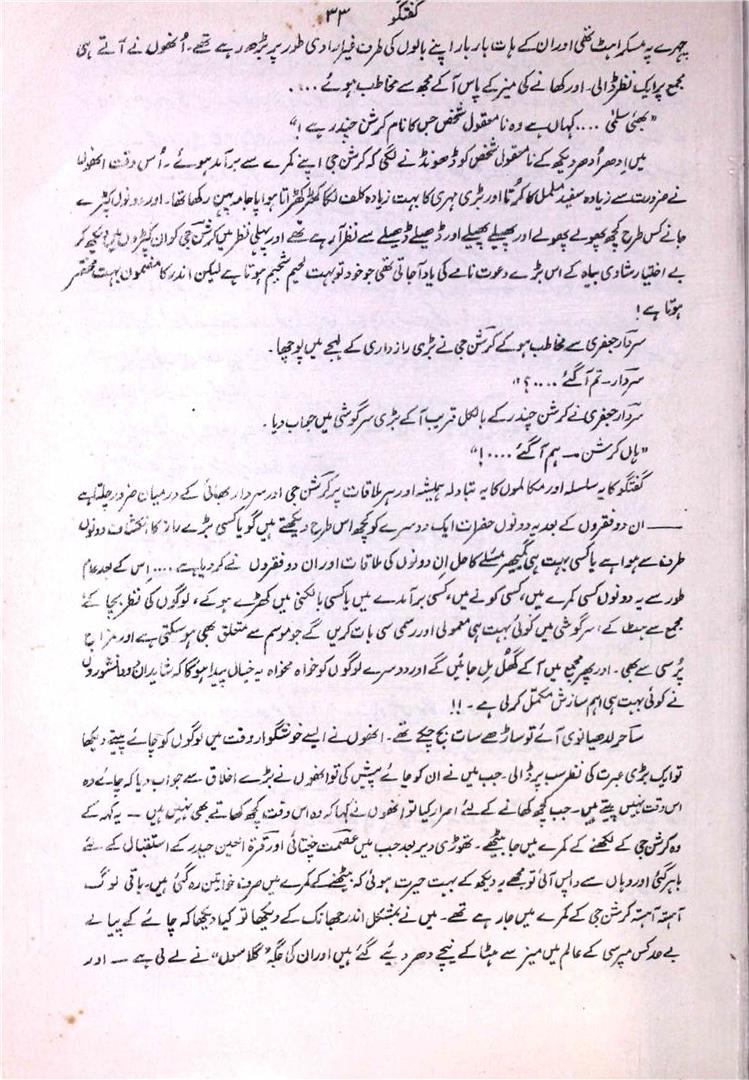 گفتگو ۳۳
چہرے پہ مسکراہٹ تھی اور ان کے ہات بار بار اپنے بالوں کی طرف غیر ارادی طور پر بڑھ رہے تھے۔ اُنھوں نے آتے ہی
مجمع پر ایک نظر ڈالی۔ اور کھانے کی میز کے پاس آ کے مجھ سے مخاطب ہوئے ....
"بھئی سلمیٰ .... کہاں ہے وہ نامعقول شخص جس کا نام کرشن چندر ہے!"
میں اِدھر اُدھر دیکھ کے نامعقول شخص کو ڈھونڈنے لگی کہ کرشن جی اپنے کمرے سے برآمد ہوئے۔ اُس وقت انھوں
نے ضرورت سے زیادہ سفید ململ کا کُرتا اور بڑی مہری کا بہت زیادہ کلف لگا کھڑکھڑاتا ہوا پاجامہ پہن رکھا تھا۔ اور دونوں کپڑے
جانے کس طرح کچھ پھولے پھولے اور پھیلے پھیلے اور ڈھیلے ڈھیلے سے نظر آ رہے تھے اور پہلی نظر میں کرشن جی کو ان کپڑوں میں دیکھ کر
بے اختیار شادی بیاہ کے اس بڑے دعوت نامے کی یاد آجاتی تھی جو خود تو بہت لحیم شحیم ہوتا ہے لیکن اندر کا مضمون بہت مختصر
ہوتا ہے!
سردار جعفری سے مخاطب ہو کے کرشن جی نے بڑی راز داری کے لہجے میں پوچھا۔
سردار۔ تم آ گئے ....؟"
سردار جعفری نے کرشن چندر کے بالکل قریب آ کے بڑی سرگوشی میں جواب دیا۔
"ہاں کرشن — ہم آ گئے ....!"
گفتگو کا یہ سلسلہ اور مکالموں کا یہ تبادلہ ہمیشہ اور ہر ملاقات پر کرشن جی اور سردار بھائی کے درمیان ضرور چلتا ہے
—— ان دو فقروں کے بعد یہ دونوں حضرات ایک دوسرے کو کچھ اس طرح دیکھتے ہیں گویا کسی بڑے راز کا انکشاف دونوں
طرف سے ہوا ہے یا کسی بہت ہی گمبھیر مسئلے کا حل اِن دونوں کی ملاقات اور ان دو فقروں نے کر دیا ہے .... اس کے بعد عام
طور سے یہ دونوں کسی کمرے میں، کسی کونے میں، کسی برآمدے میں یا کسی بالکنی میں کھڑے ہو کے، لوگوں کی نظر بچا کے
مجمع سے ہٹ کے، سرگوشی میں کوئی بہت ہی معمولی اور رسمی سی بات کریں گے جو موسم سے متعلق بھی ہو سکتی ہے اور مزاج
پُرسی سے بھی۔ اور پھر مجمع میں آ کے گھُل مِل جائیں گے اور دوسرے لوگوں کو خواہ مخواہ یہ خیال پیدا ہوگا کہ شاید ان دو دانشوروں
نے کوئی بہت ہی اہم سازش مکمل کر لی ہے۔!!
ساحر لدھیانوی آئے تو ساڑھے سات بج چکے تھے۔ انھوں نے ایسے خوشگوار وقت میں لوگوں کو چائے پیتے دیکھا
تو ایک بڑی عبرت کی نظر سب پر ڈالی۔ جب میں نے ان کو چائے پیش کی تو انھوں نے بڑے اخلاق سے جواب دیا کہ چائے وہ
اس وقت نہیں پیتے ہیں۔ جب کچھ کھانے کے لئے اصرار کیا تو انھوں نے کہا کہ وہ اس وقت کچھ کھاتے بھی نہیں ہیں — یہ کہہ کے
وہ کرشن جی کے لکھنے کے کمرے میں جا بیٹھے۔ تھوڑی دیر بعد جب میں عصمت چغتائی اور قرۃ العین حیدر کے استقبال کے لئے
باہر گئی اور وہاں سے واپس آئی تو مجھے یہ دیکھ کے بہت حیرت ہوئی کہ بیٹھنے کے کمرے میں صرف خواتین رہ گئی ہیں۔ باقی لوگ
آہستہ آہستہ کرشن جی کے کمرے میں جا رہے تھے۔ میں نے بمشکل اندر جھانک کے دیکھا تو کیا دیکھا کہ چائے کے پیالے
بے حد کس مپرسی کے عالم میں میز سے ہٹا کے نیچے دھر دیئے گئے ہیں اور ان کی جگہ "گلاسوں" نے لے لی ہے — اور